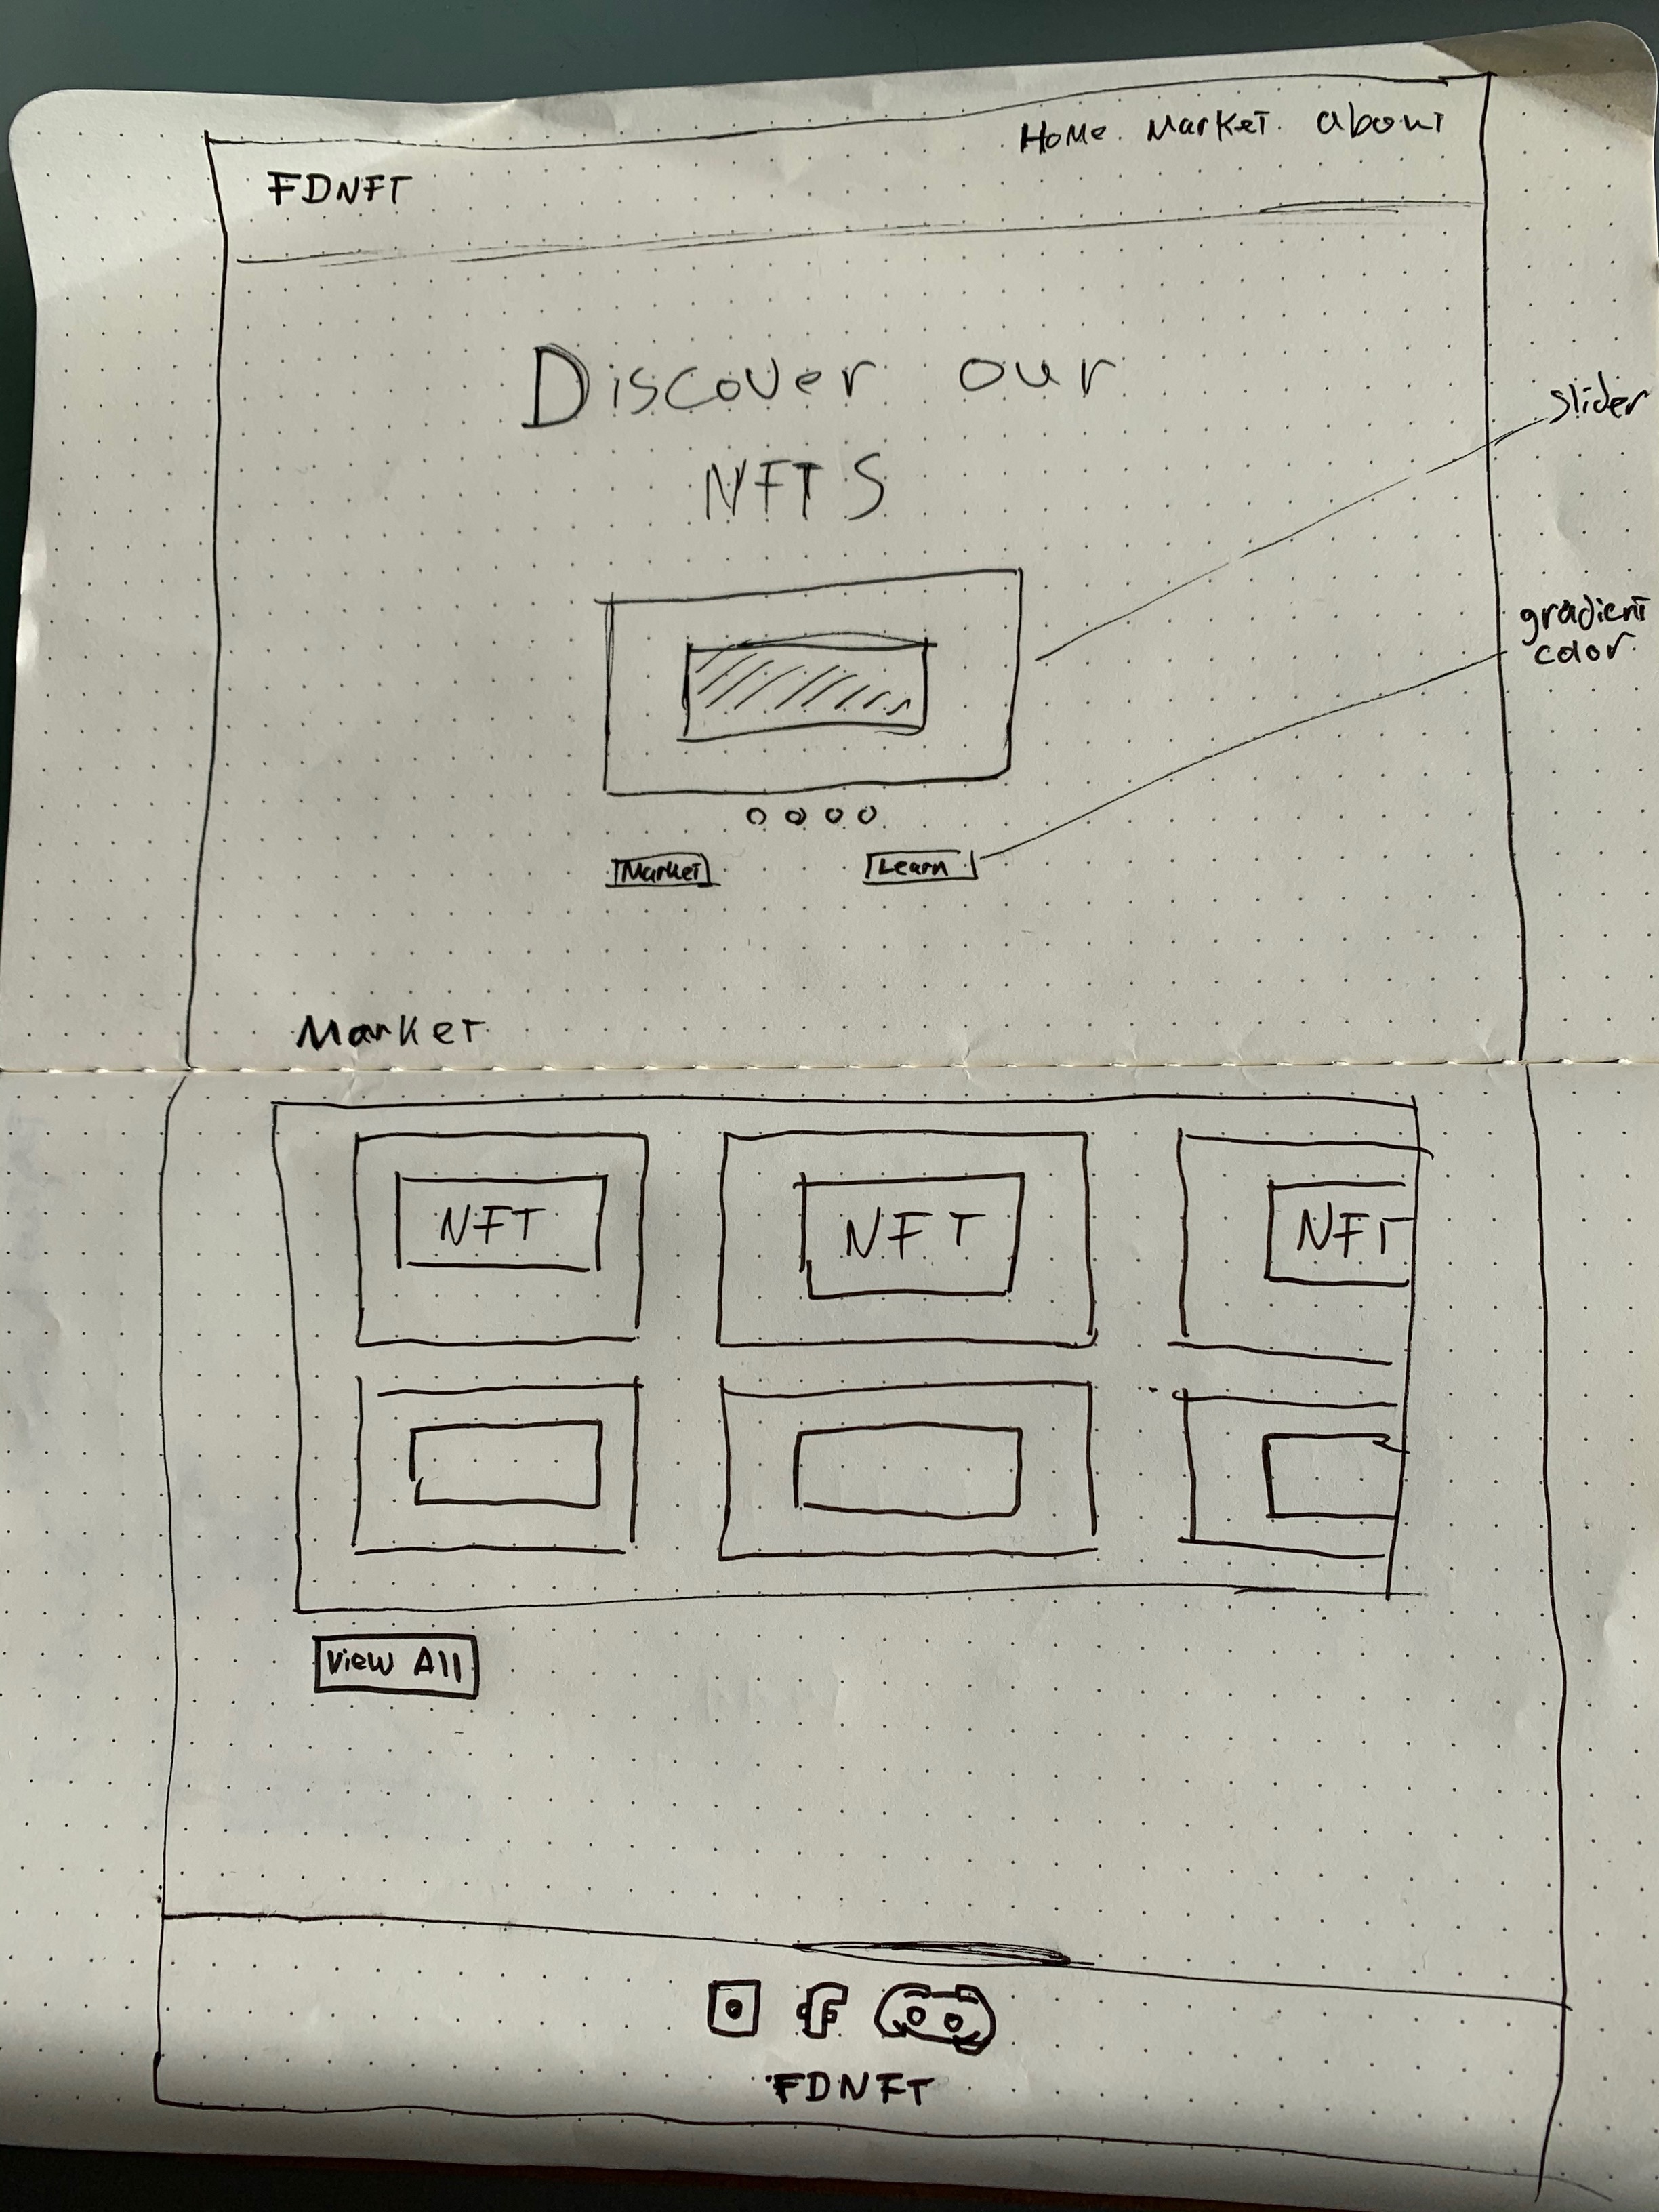 Home Market about
FDNFT
Discover our
NFTS
slider
gradient
color
Market
Learn
Market
NFT
NFT
NFT
View All
f
FDNFT